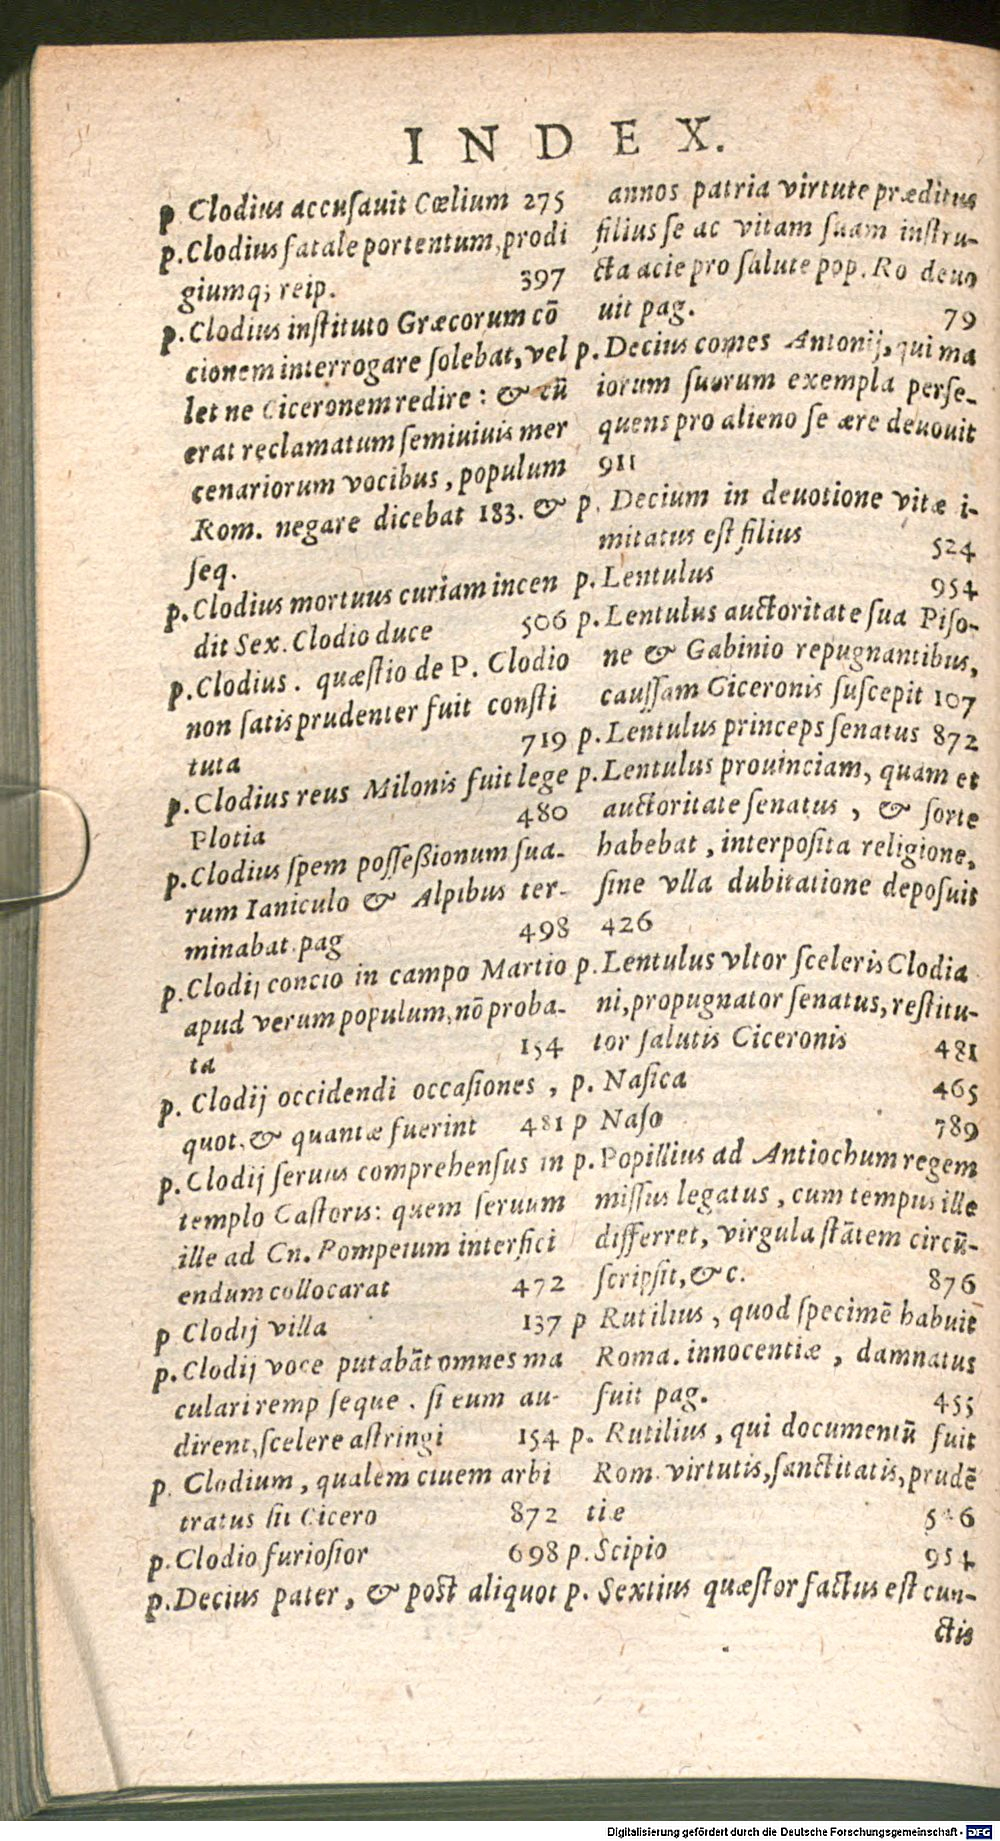 INDEX.
p. Clodius accusauit Cœlium 275
p. Clodius fatale portentum, prodi
giumq; reip. 397
p. Clodius instituto Græcorum cō
cionem interrogare solebat, vel
let ne Ciceronem redire: & cū
erat reclamatum semiuiuis mer
cenariorum vocibus, populum
Rom. negare dicebat 183. &
seq.
p. Clodius mortuus curiam incen
dit Sex. Clodio duce 506
p. Clodius. quæstio de P. Clodio
non satis prudenter fuit consti
tuta 719
p. Clodius reus Milonis fuit lege
Plotia 480
p. Clodius spem possessionum sua-
rum Ianiculo & Alpibus ter-
minabat pag 498
p. Clodij concio in campo Martio
apud verum populum, nō proba-
ta 154
p. Clodij occidendi occasiones,
quot, & quantæ fuerint 481
p. Clodij seruus comprehensus in
templo Castoris: quem seruum
ille ad Cn. Pompeium interfici
endum collocarat 472
p Clodij villa 137
p. Clodij voce putabāt omnes ma
culari remp seque. si eum au-
dirent, scelere astringi 154
p. Clodium, qualem ciuem arbi
tratus sit Cicero 872
p. Clodio furiosior 698
p. Decius pater, & post aliquot
annos patria virtute præditus
filius se ac vitam suam instru-
cta acie pro salute pop. Ro deuo
uit pag. 79
p. Decius comes Antonij, qui ma
iorum suorum exempla perse-
quens pro alieno se ære deuouit
911
p. Decium in deuotione vitæ i-
mitatus est filius 524
p. Lentulus 954
p. Lentulus auctoritate sua Piso-
ne & Gabinio repugnantibus,
caussam Ciceronis suscepit 107
p. Lentulus princeps senatus 872
p. Lentulus prouinciam, quam et
auctoritate senatus, & sorte
habebat, interposita religione,
sine vlla dubitatione deposuit
426
p. Lentulus vltor sceleris Clodia
ni, propugnator senatus, restitu-
tor salutis Ciceronis 481
p. Nasica 465
p Naso 789
p. Popillius ad Antiochum regem
missus legatus, cum tempus ille
differret, virgula stātem circū-
scripsit, &c. 876
p Rutilius, quod specimē habuit
Roma. innocentiæ, damnatus
fuit pag. 455
p. Rutilius, qui documentū fuit
Rom. virtutis, sanctitatis, prudē
tiæ
p. Scipio 954
p. Sextius quæstor factus est cun-
ctis
Digitalisierung gefördert durch die Deutsche Forschungsgemeinschaft - DFG